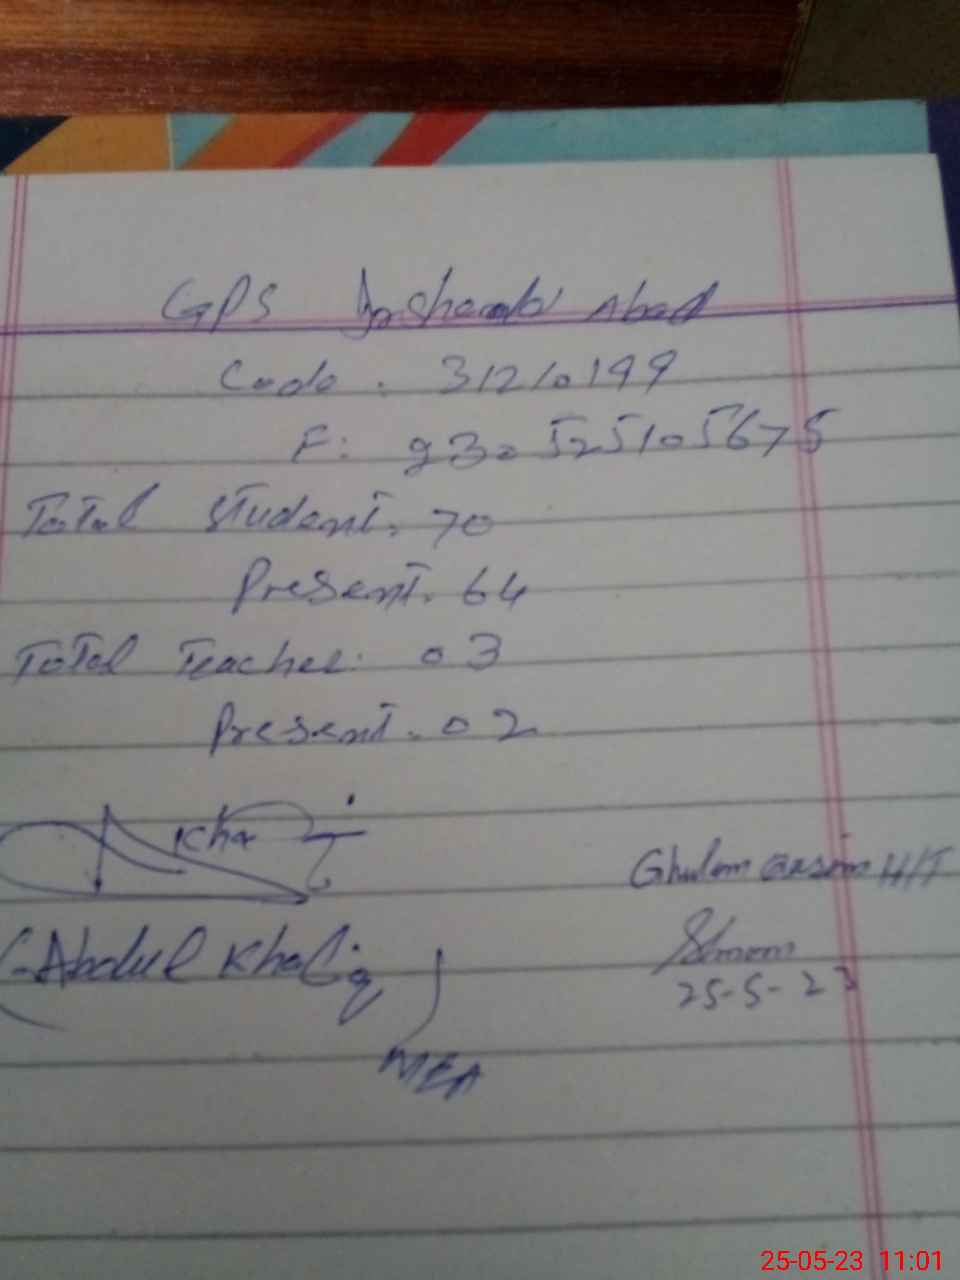 GPS Abad
Code. 31210199
F: 930525105675
Total Student. 70
Present. 64
Total Teacher. 03
Present. 02
Ghulam Qasim H/T
25-5-23
Abdul Khaliq
MEA
25-05-23 11:01